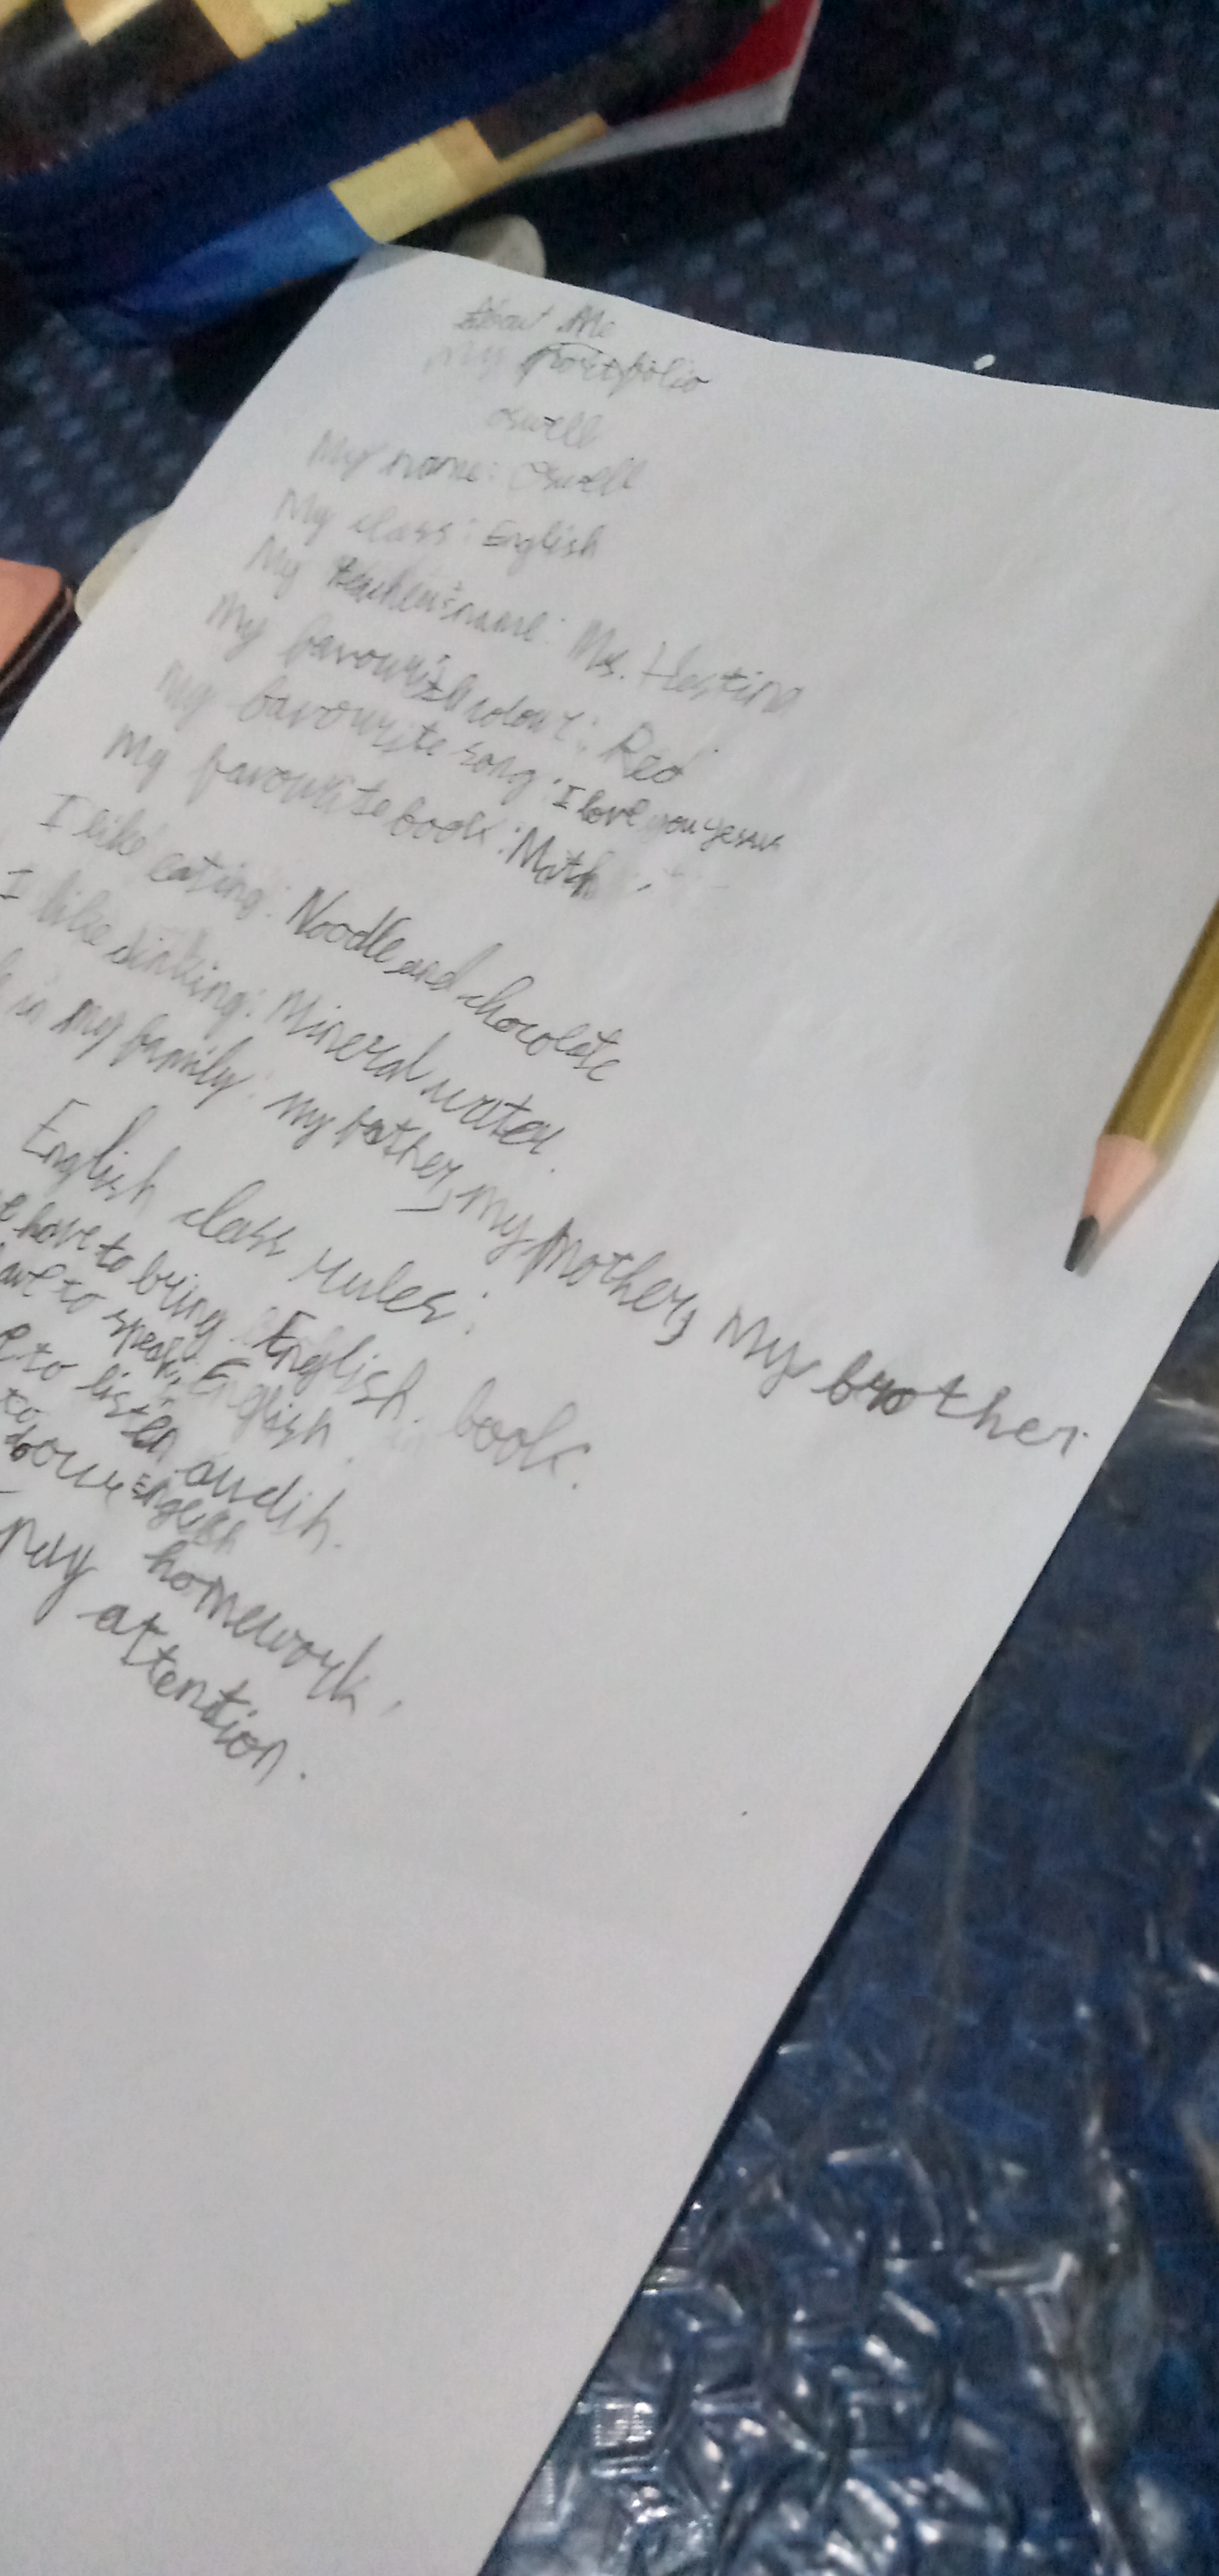 About Me
My Portfolio
Oswell
My name: Oswell
My class: English
My teacher's name: Ms.
My favourite colour: Red
My favourite song: I love you Jesus
My favourite book: Math
I like eating: Noodle and chocolate
I like dinking: Mineral water.
in my family: my father, my mother, My brother.
English class rules:
have to bring English book.
to speak English.
to listen
to do our English homework.
pay attention.